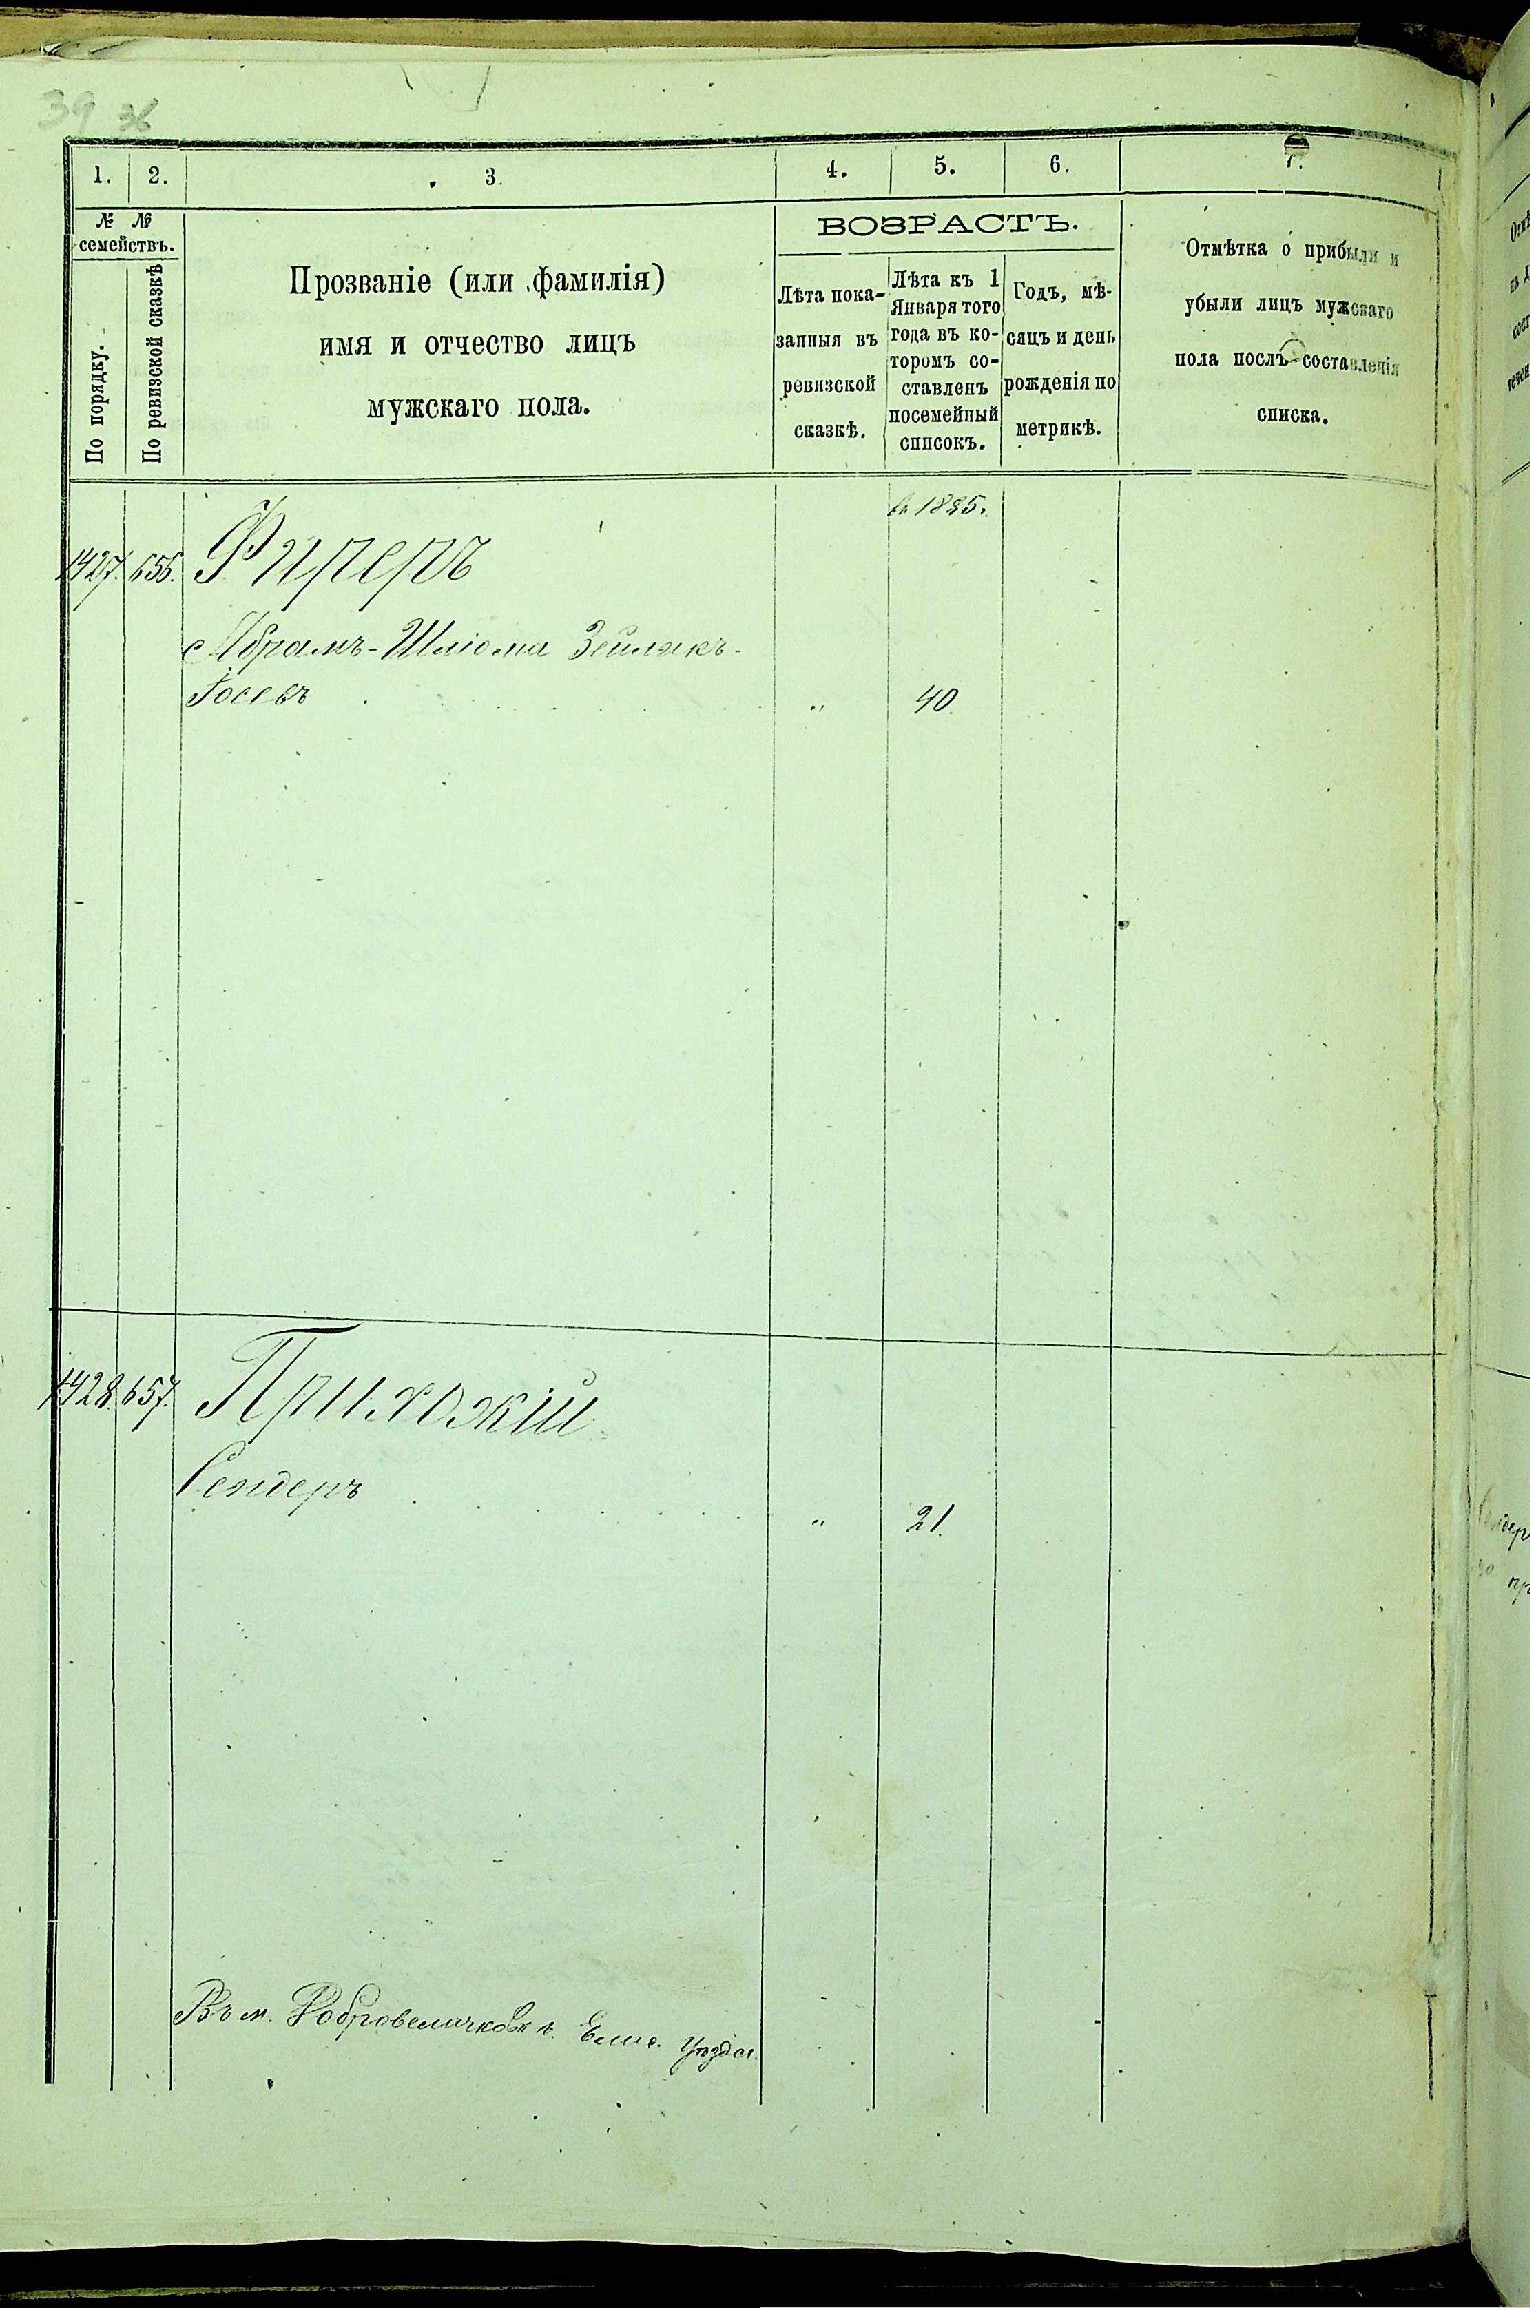 39 36
1. 2. 3 4. 5. 6. 7.
№ №
семействъ.
По порядку.
По ревизской сказкѣ
Прозваніе (или фамилія)
имя и отчество лицъ
мужскаго пола.
ВОЗРАСТЪ.
Лѣта пока-
занныя въ
ревизской
сказкѣ.
Лѣта къ 1
Января того
года въ ко-
торомъ со-
ставленъ
посемейный
списокъ.
Годъ, мѣ-
сяцъ и день
рожденія по
метрикѣ.
Отмѣтка о прибыли и
убыли лицъ мужскаго
пола послѣ составленія
списка.
1427. 656. Фиреръ
Абрамъ-Шлюма Зейликъ-
Іосевъ " 40
1428. 657. Прихожій
Сендеръ " 21.
Въ м. Добровеличковкѣ Елис. уѣзда.